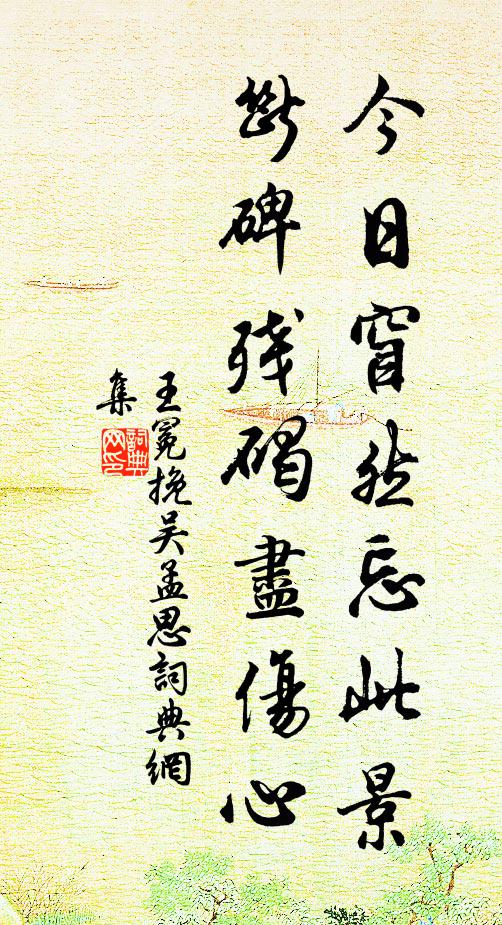 今日窅然忘此景
斷碑殘碣盡傷心
王冕挽吳孟思詞典網
集
詞典網印